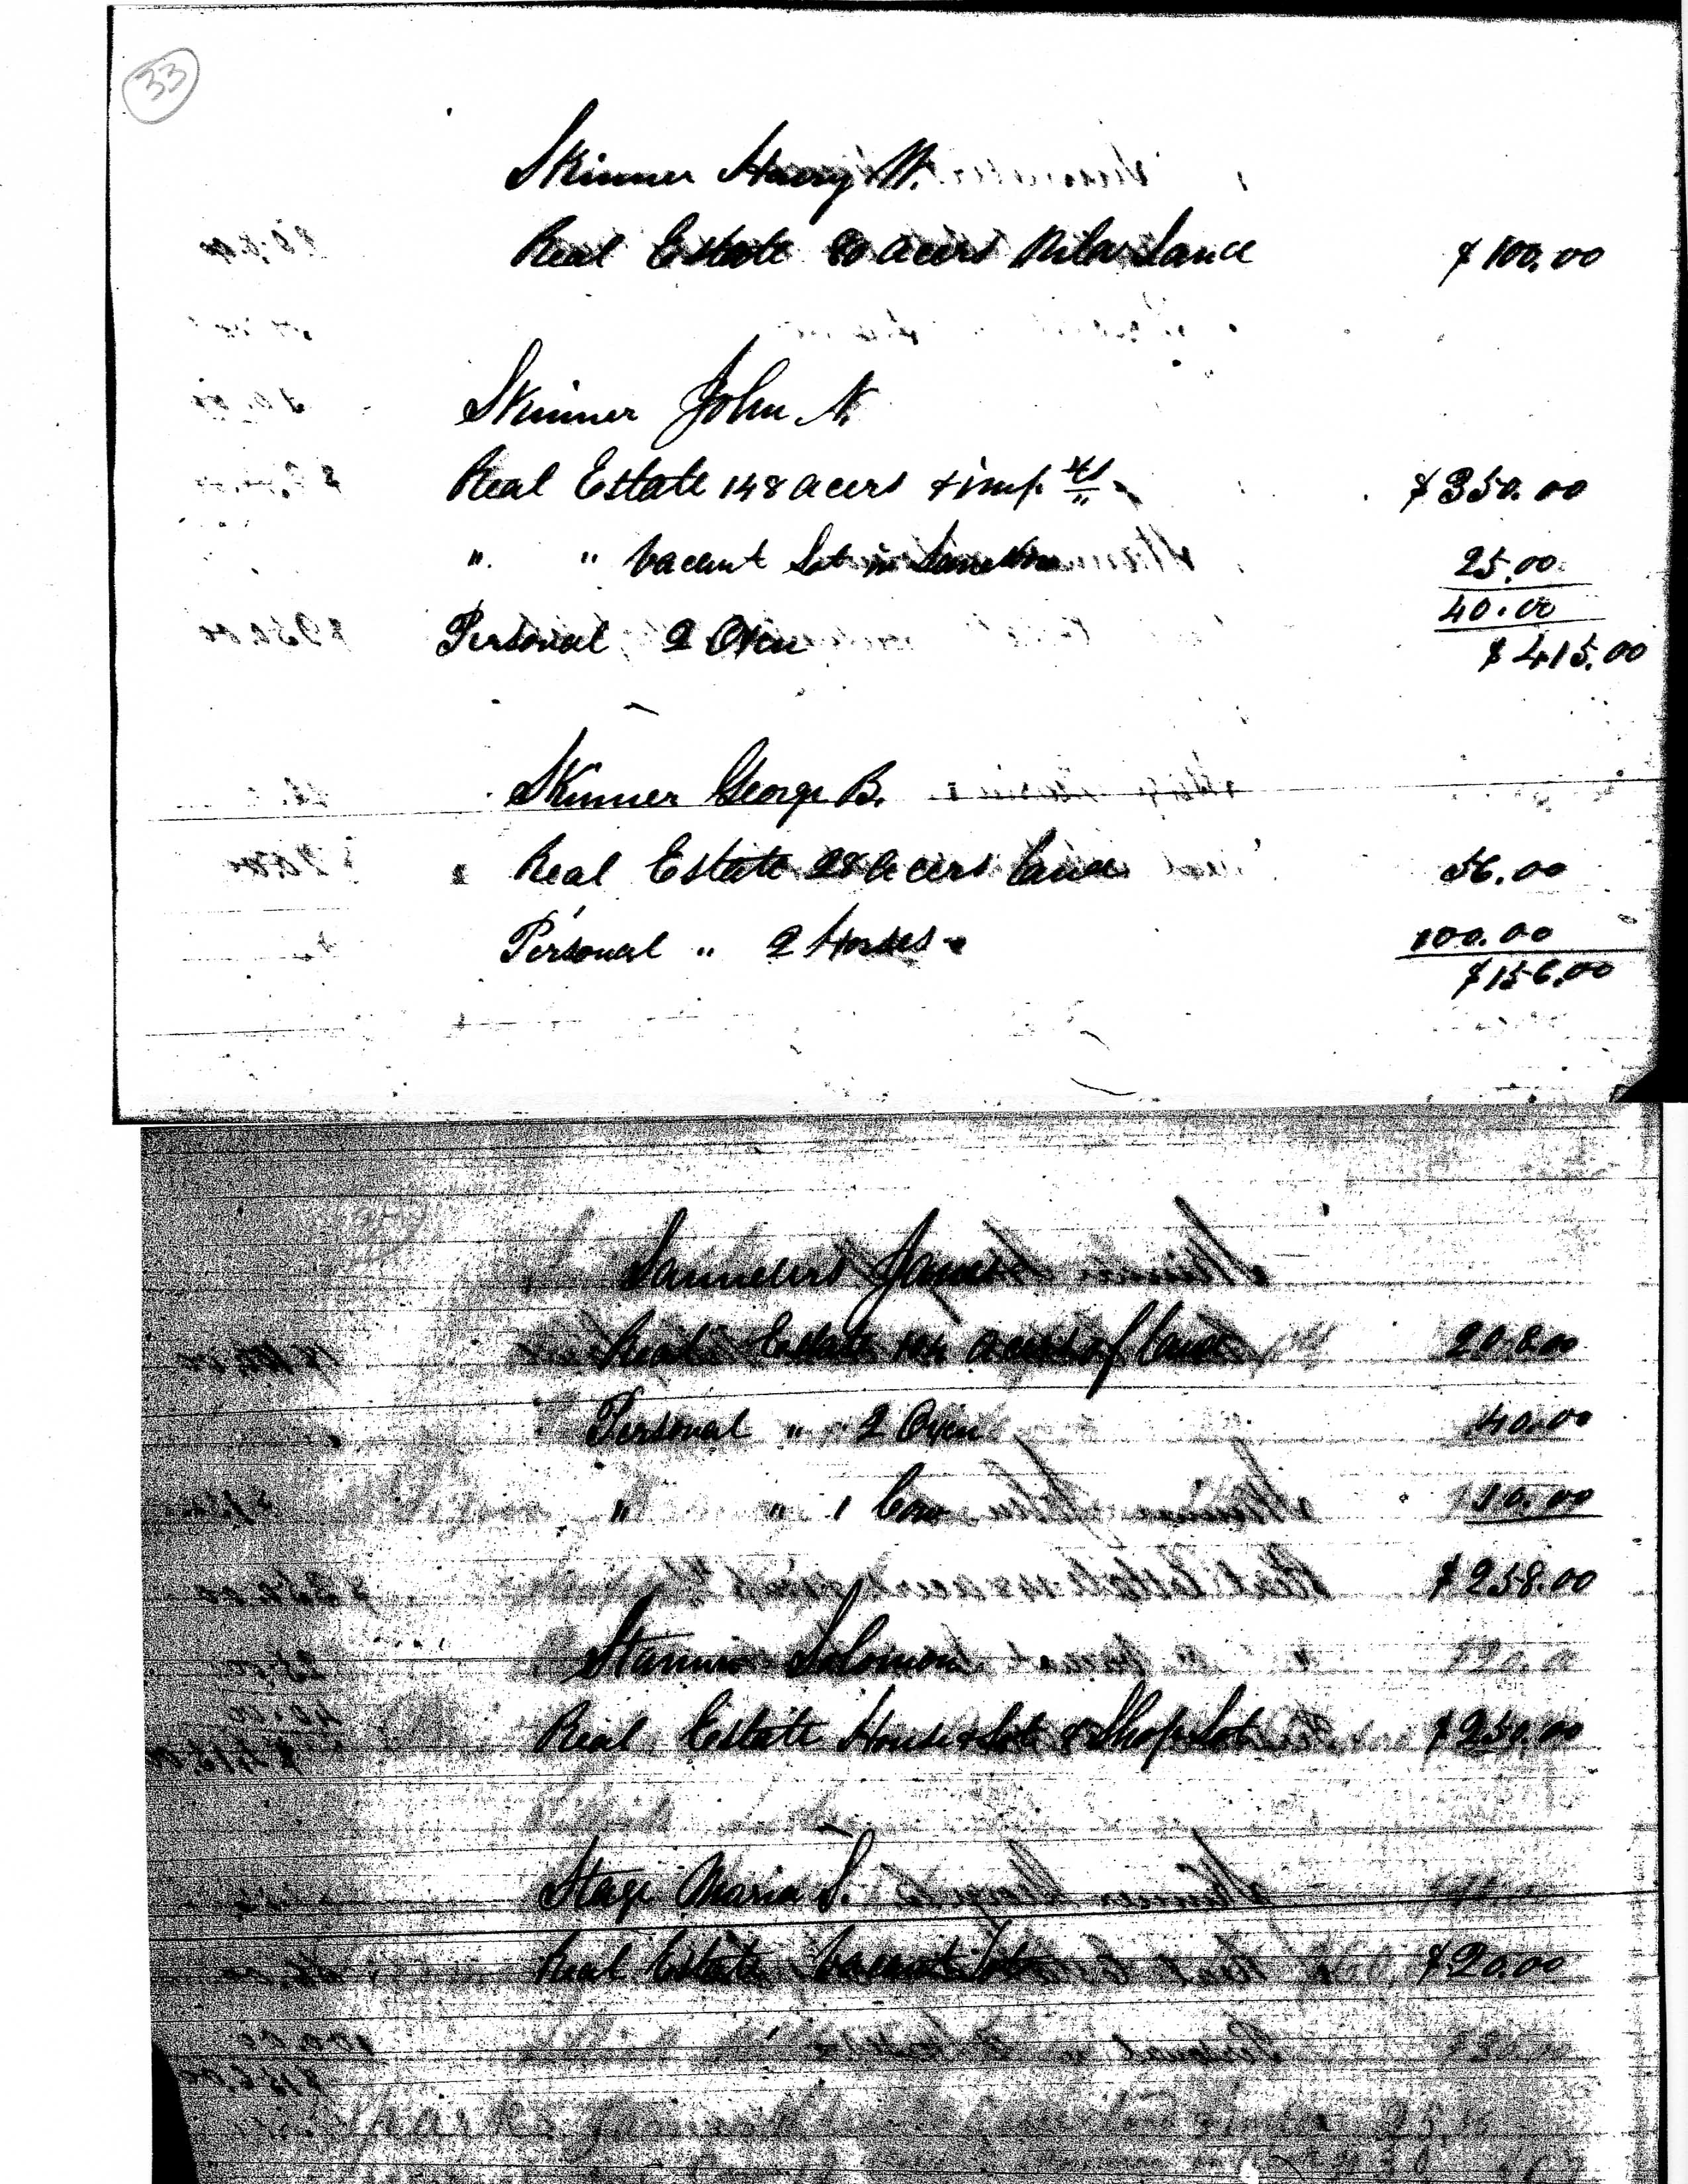 33
Skinner Harry W.
Real Estate 80 acers Land $100.00
Skinner John N.
Real Estate 148 acers & imp. ts $350.00
" " Vacant Lot in 25.00
40.00
Personal 2 Oxen
$415.00
Skinner George B.
Real Estate 28 acers Land 56.00
Personal " 2 Horses 100.00
$156.00
Saunders James
Real Estate 104 acers of Land 208.00
Personal " 2 Oxen 40.00
" " 1 Cow 10.00
$258.00
Solomon
Real Estate House & Lot & Shop Lot $250.00
Stage Maria S.
Real Estate Vacant Lot $20.00